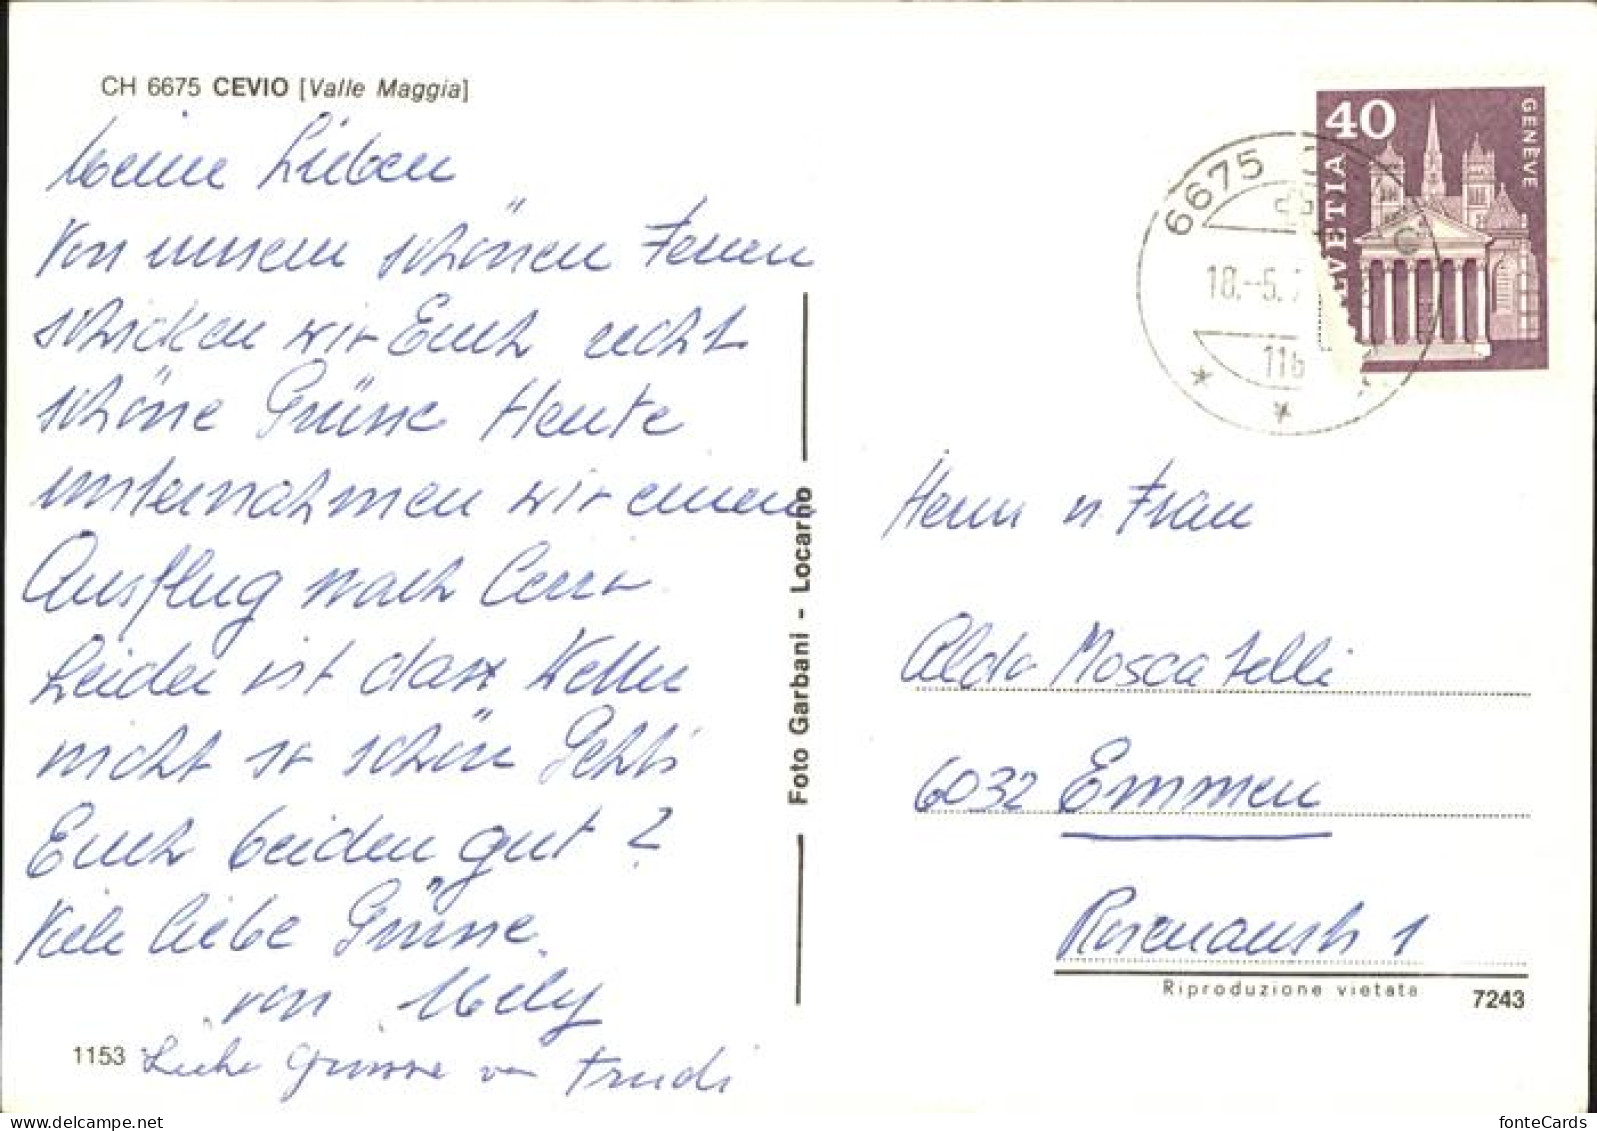 CH 6675 CEVIO [Valle Maggia]
Meine Lieben
Von unsern schönen Ferien
schicken wir Euch recht
schöne Grüsse Heute
unternahmen wir einen
Ausflug nach
Leider ist das Wetter
nicht so schön Gehts
Euch beiden gut?
Viele liebe Grüsse
von Mely
Liebe Grüsse von Trudi
1153
Foto Garbani - Locarno
HELVETIA 40 GENÈVE
6675
18.-5.7
116
Herrn u. Frau
Aldo Moscatelli
6032 Emmen
Rosenaustr 1
Riproduzione vietata
7243
fonteCards